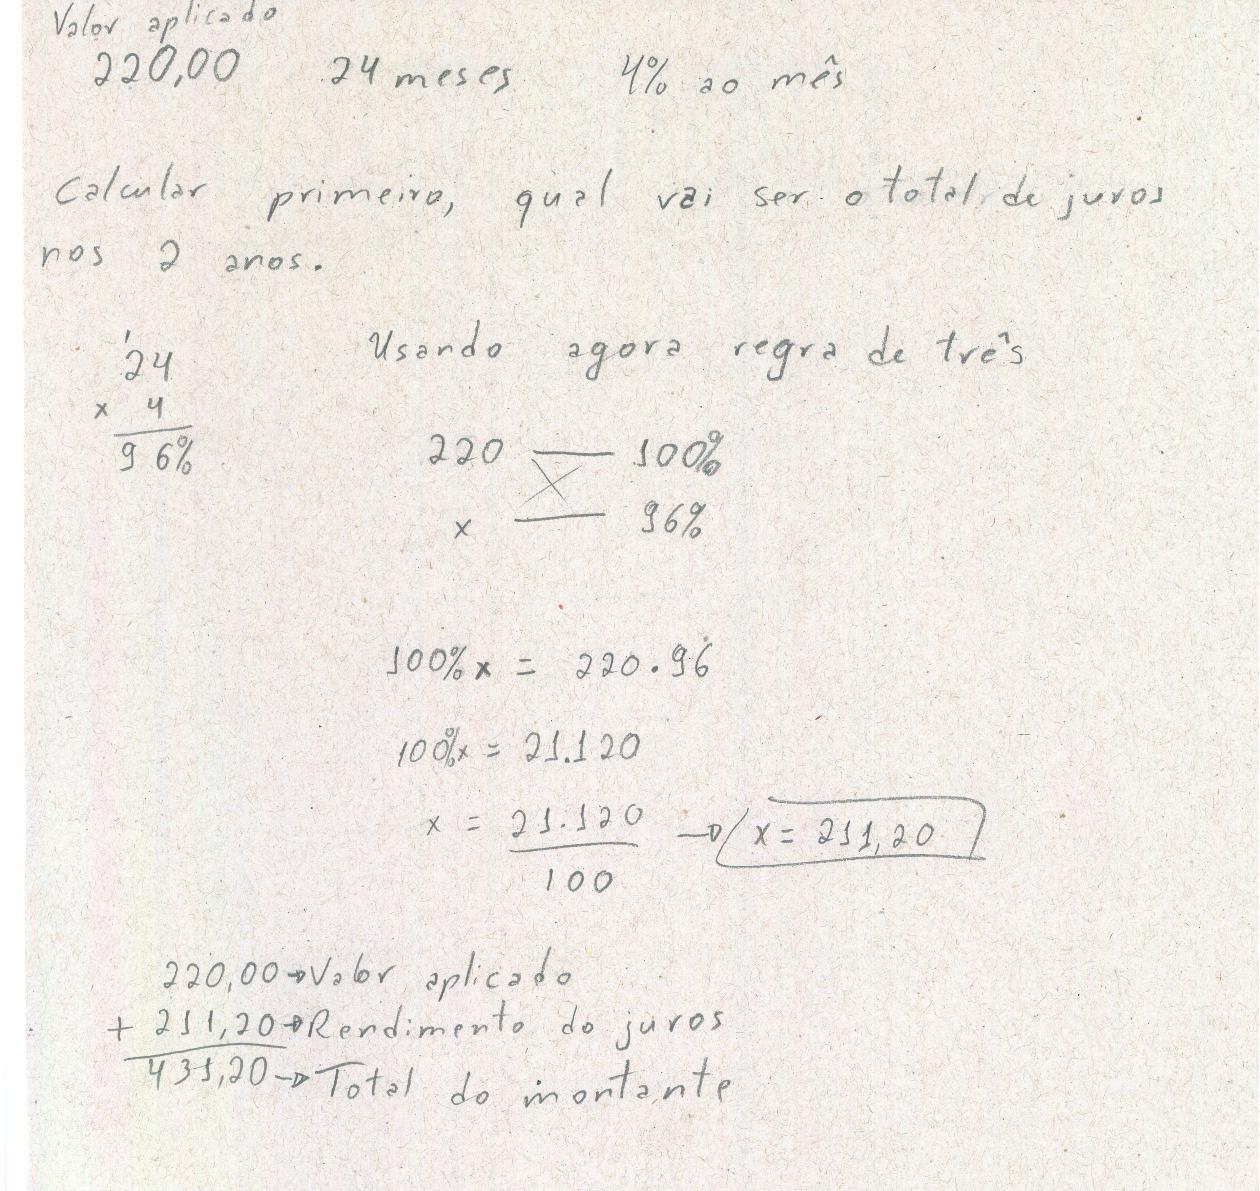 Valor aplicado
220,00 24 meses 4% ao mês
Calcular primeiro, qual vai ser o total de juros
nos 2 anos.
Usando agora regra de três
1
24
x 4
96%
220 100%
x 96%
100%x = 220.96
100%x = 21.120
x = 21.120 → x = 211,20
100
220,00 → Valor aplicado
+ 211,20 → Rendimento do juros
431,20 → Total do montante